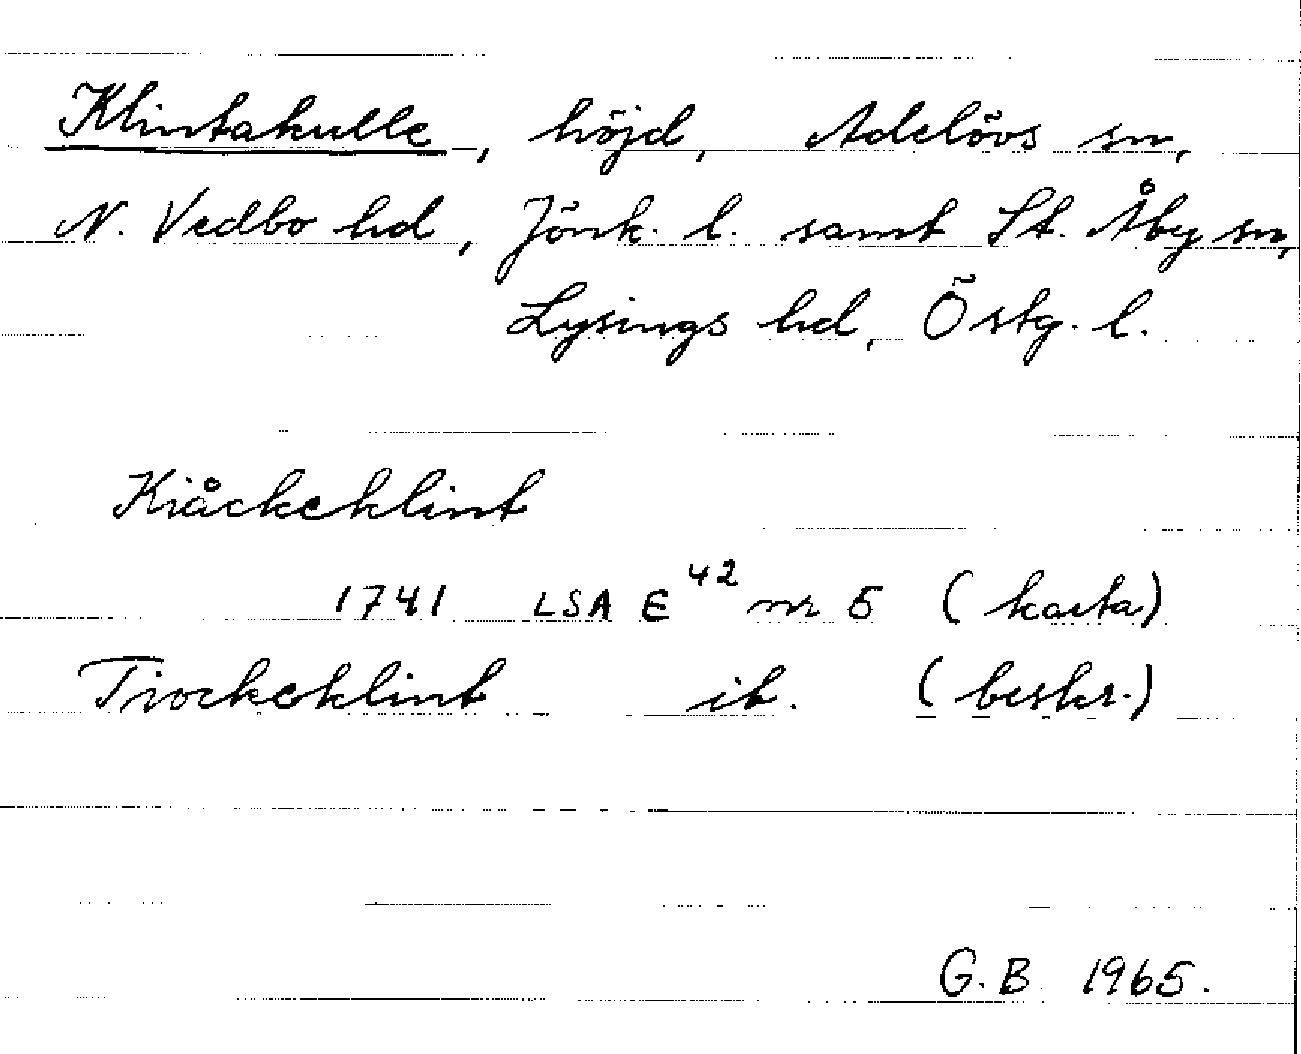 Klintakulle, höjd, Adelövs sn,
N. Vedbo hd, Jönk. l. samt St. Åby sn,
Lysings hd, Östg. l.
Kiåckeklint
1741 LSA E42 nr 5 (karta)
Tiockeklint ib. (beskr.)
G.B. 1965.